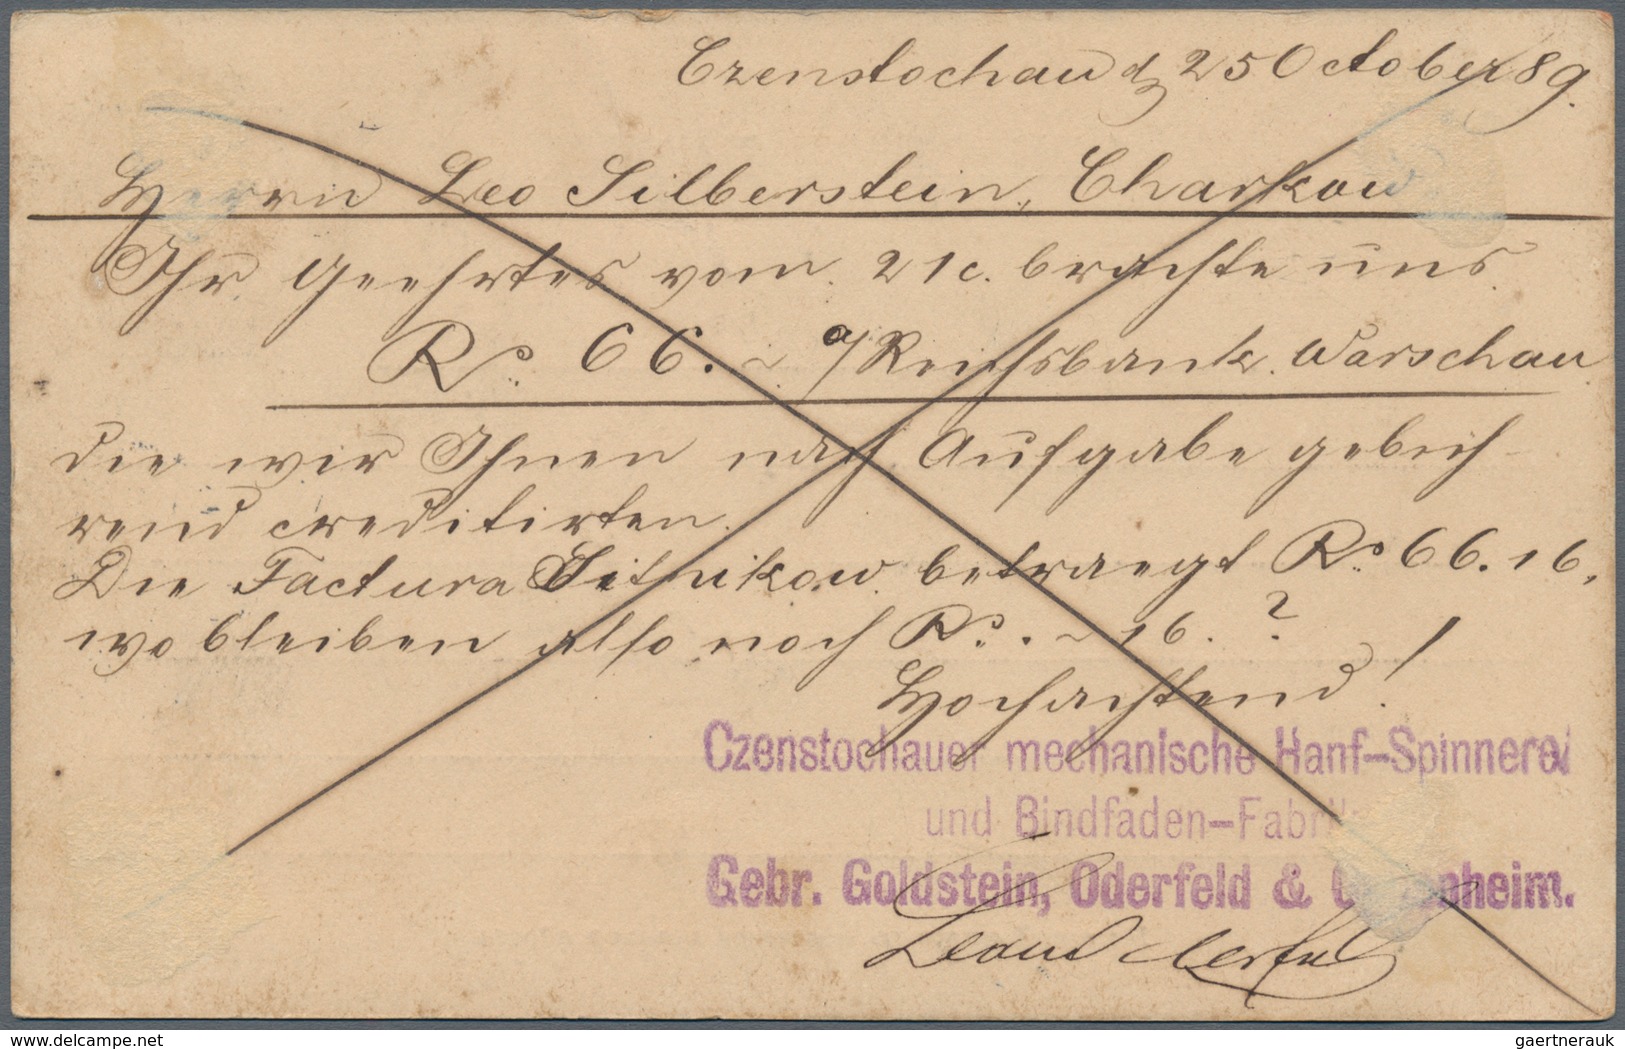 Czenstochau d 25 October 89.
Herrn Leo Silberstein, Charkow
Ihr Geehrtes vom 21 c. brachte uns
Ro. 66. ~ a/ Reichsbank Warschau
die wir Ihnen nach Aufgabe gebüh-
rend creditirten.
Die Factura Sitnikow betraegt Ro. 66.16,
wo bleiben also noch Ro. . ~ 16. ?
Hochachtend!
Czenstochauer mechanische Hanf-Spinnerei
und Bindfaden-Fabrik
Gebr. Goldstein, Oderfeld &
delcampe.net
gaertnerauk